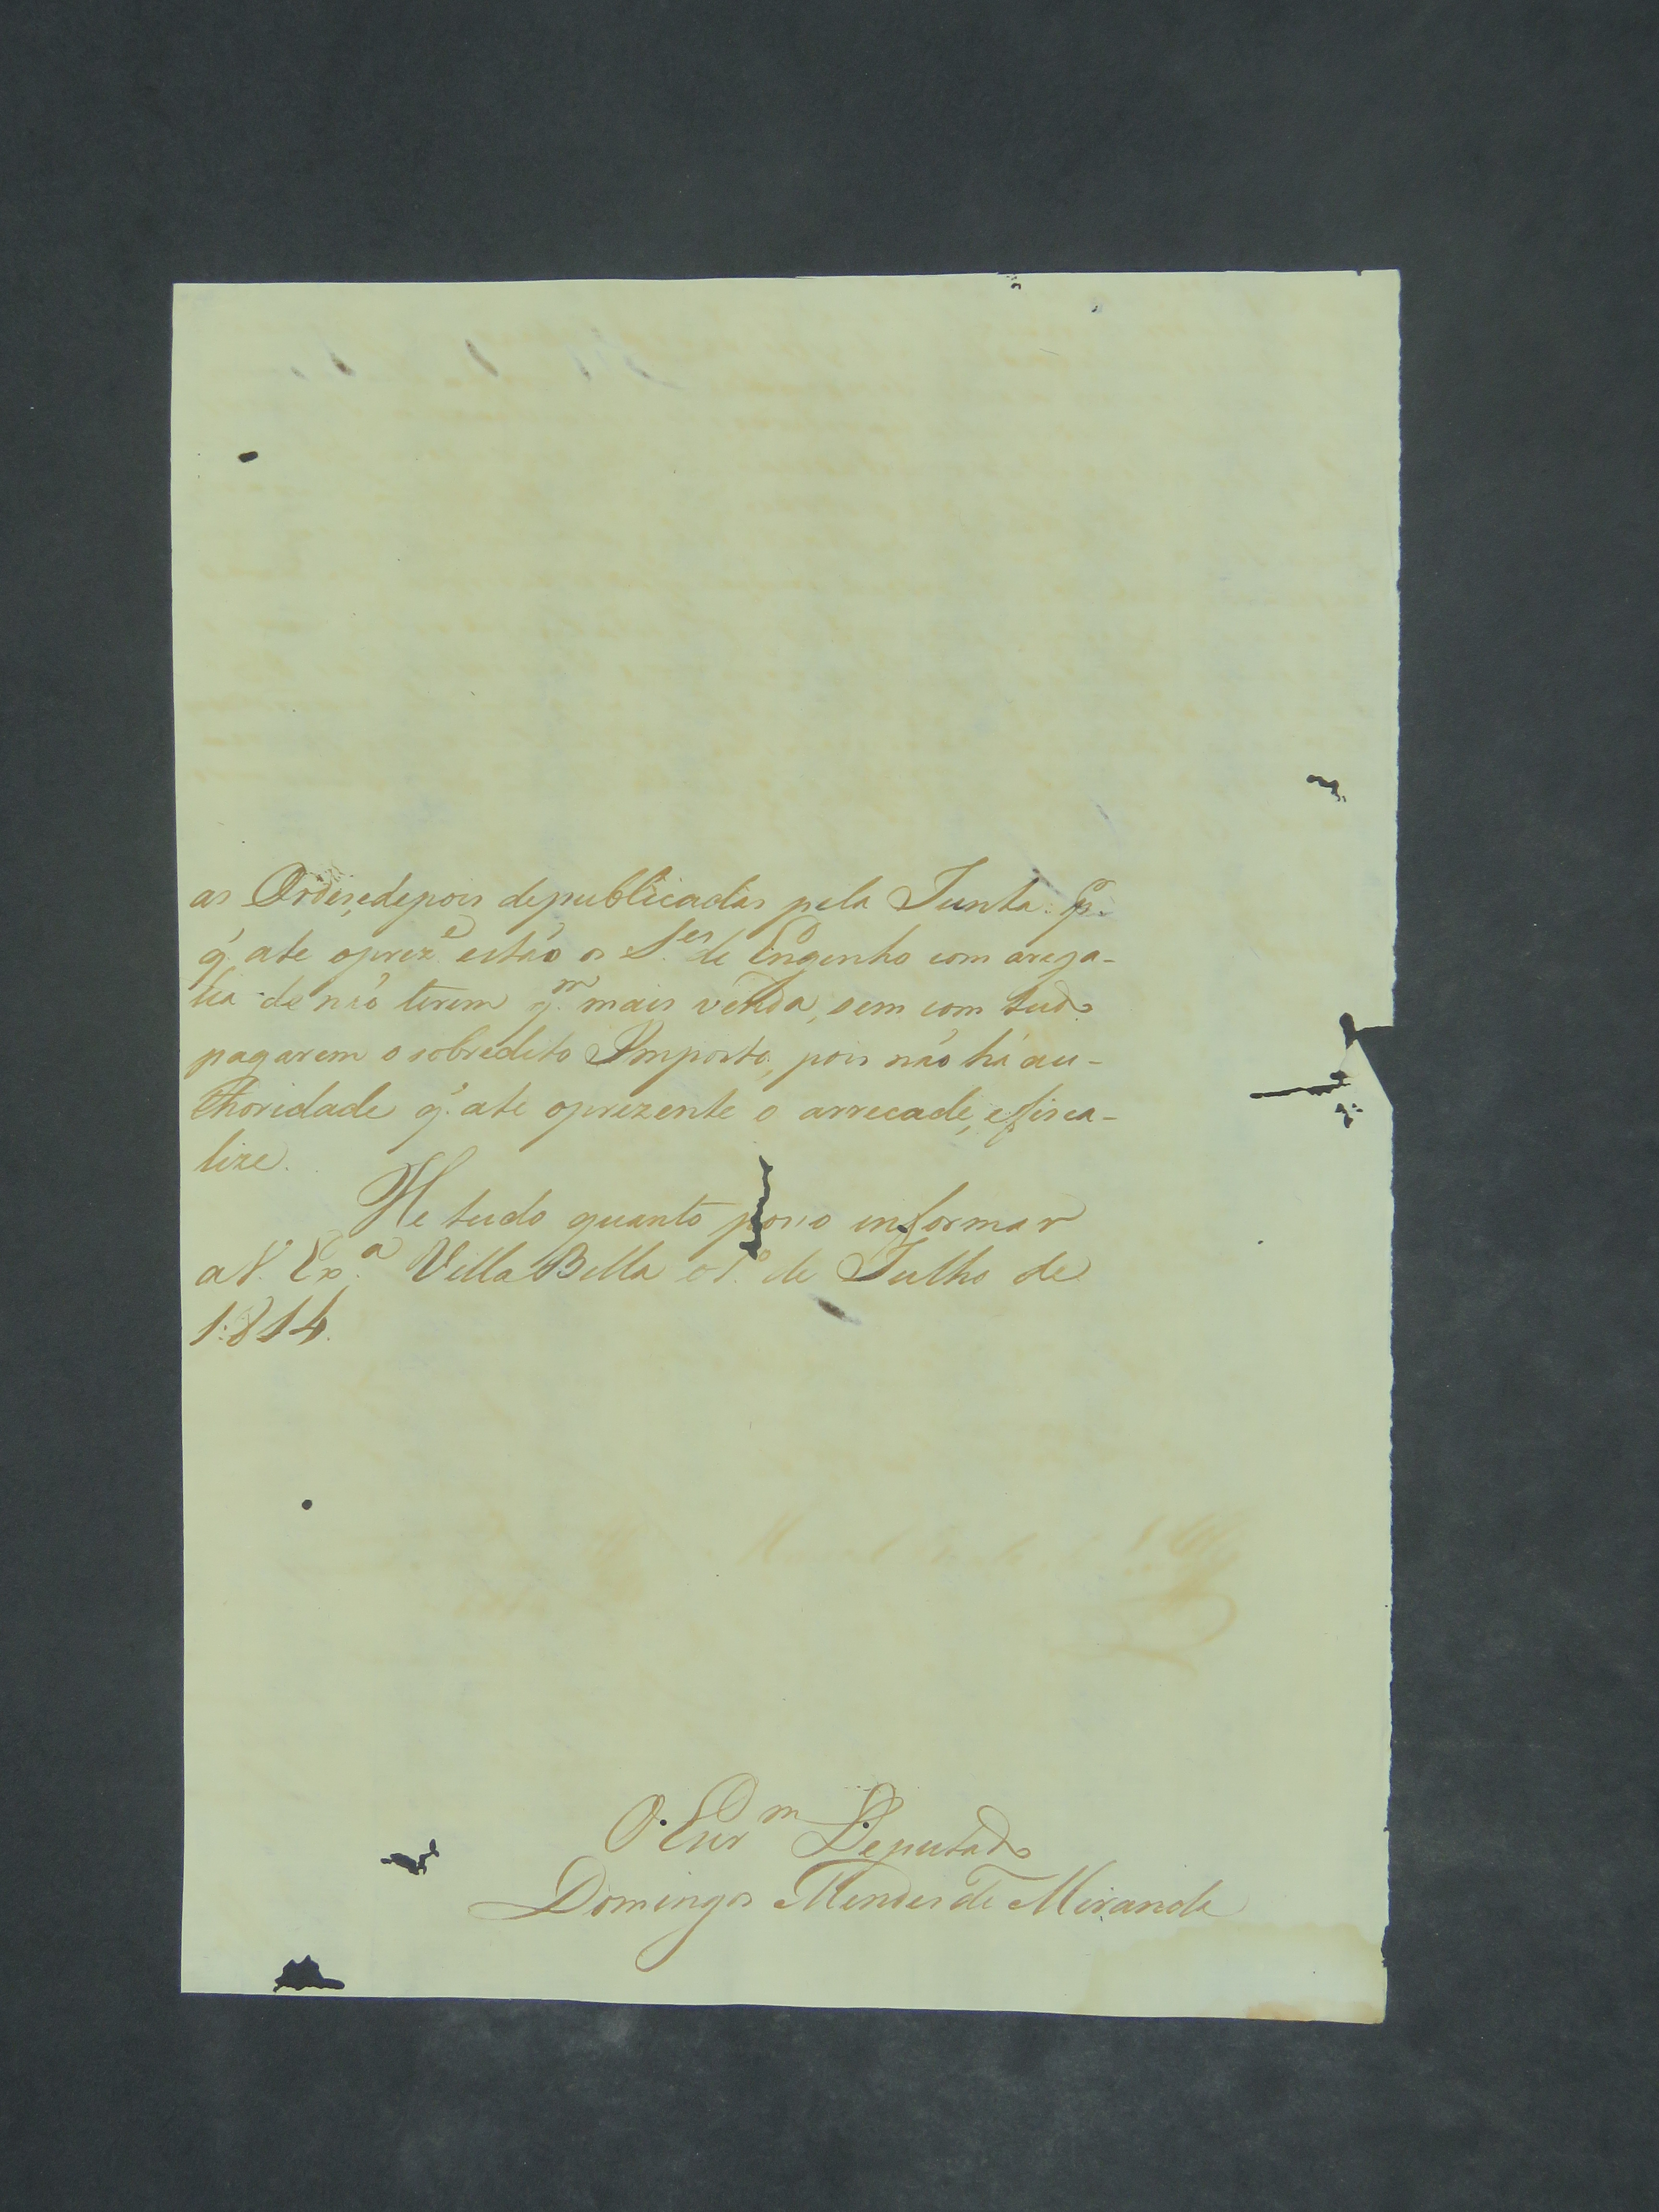 as Ordeñs, e depois de publicadas pela Junta. P.
q'. ate oprez.e estão os S.es de Engenho com a rega-
lia de não terem q.m mais venda, sem com tudo
pagarem o sobredito Imposto, pois não há au-
thoridade q'. ate oprezente o arrecade, e fisca-
lize.
He tudo quanto posso informar
a V. Ex.a Villa Bella o 1.o de Julho de
1814.
O Escr.m Deputado
Domingos Mendes de Miranda